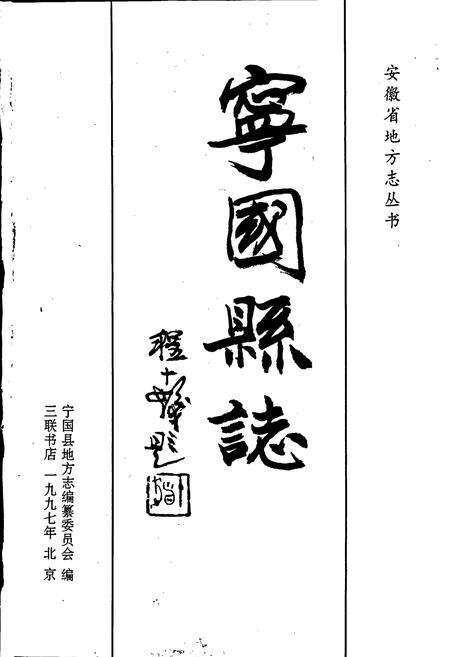 安徽省地方志丛书
寧國縣誌
程十髮题
宁国县地方志编纂委员会 编
三联书店 一九九七年 北京